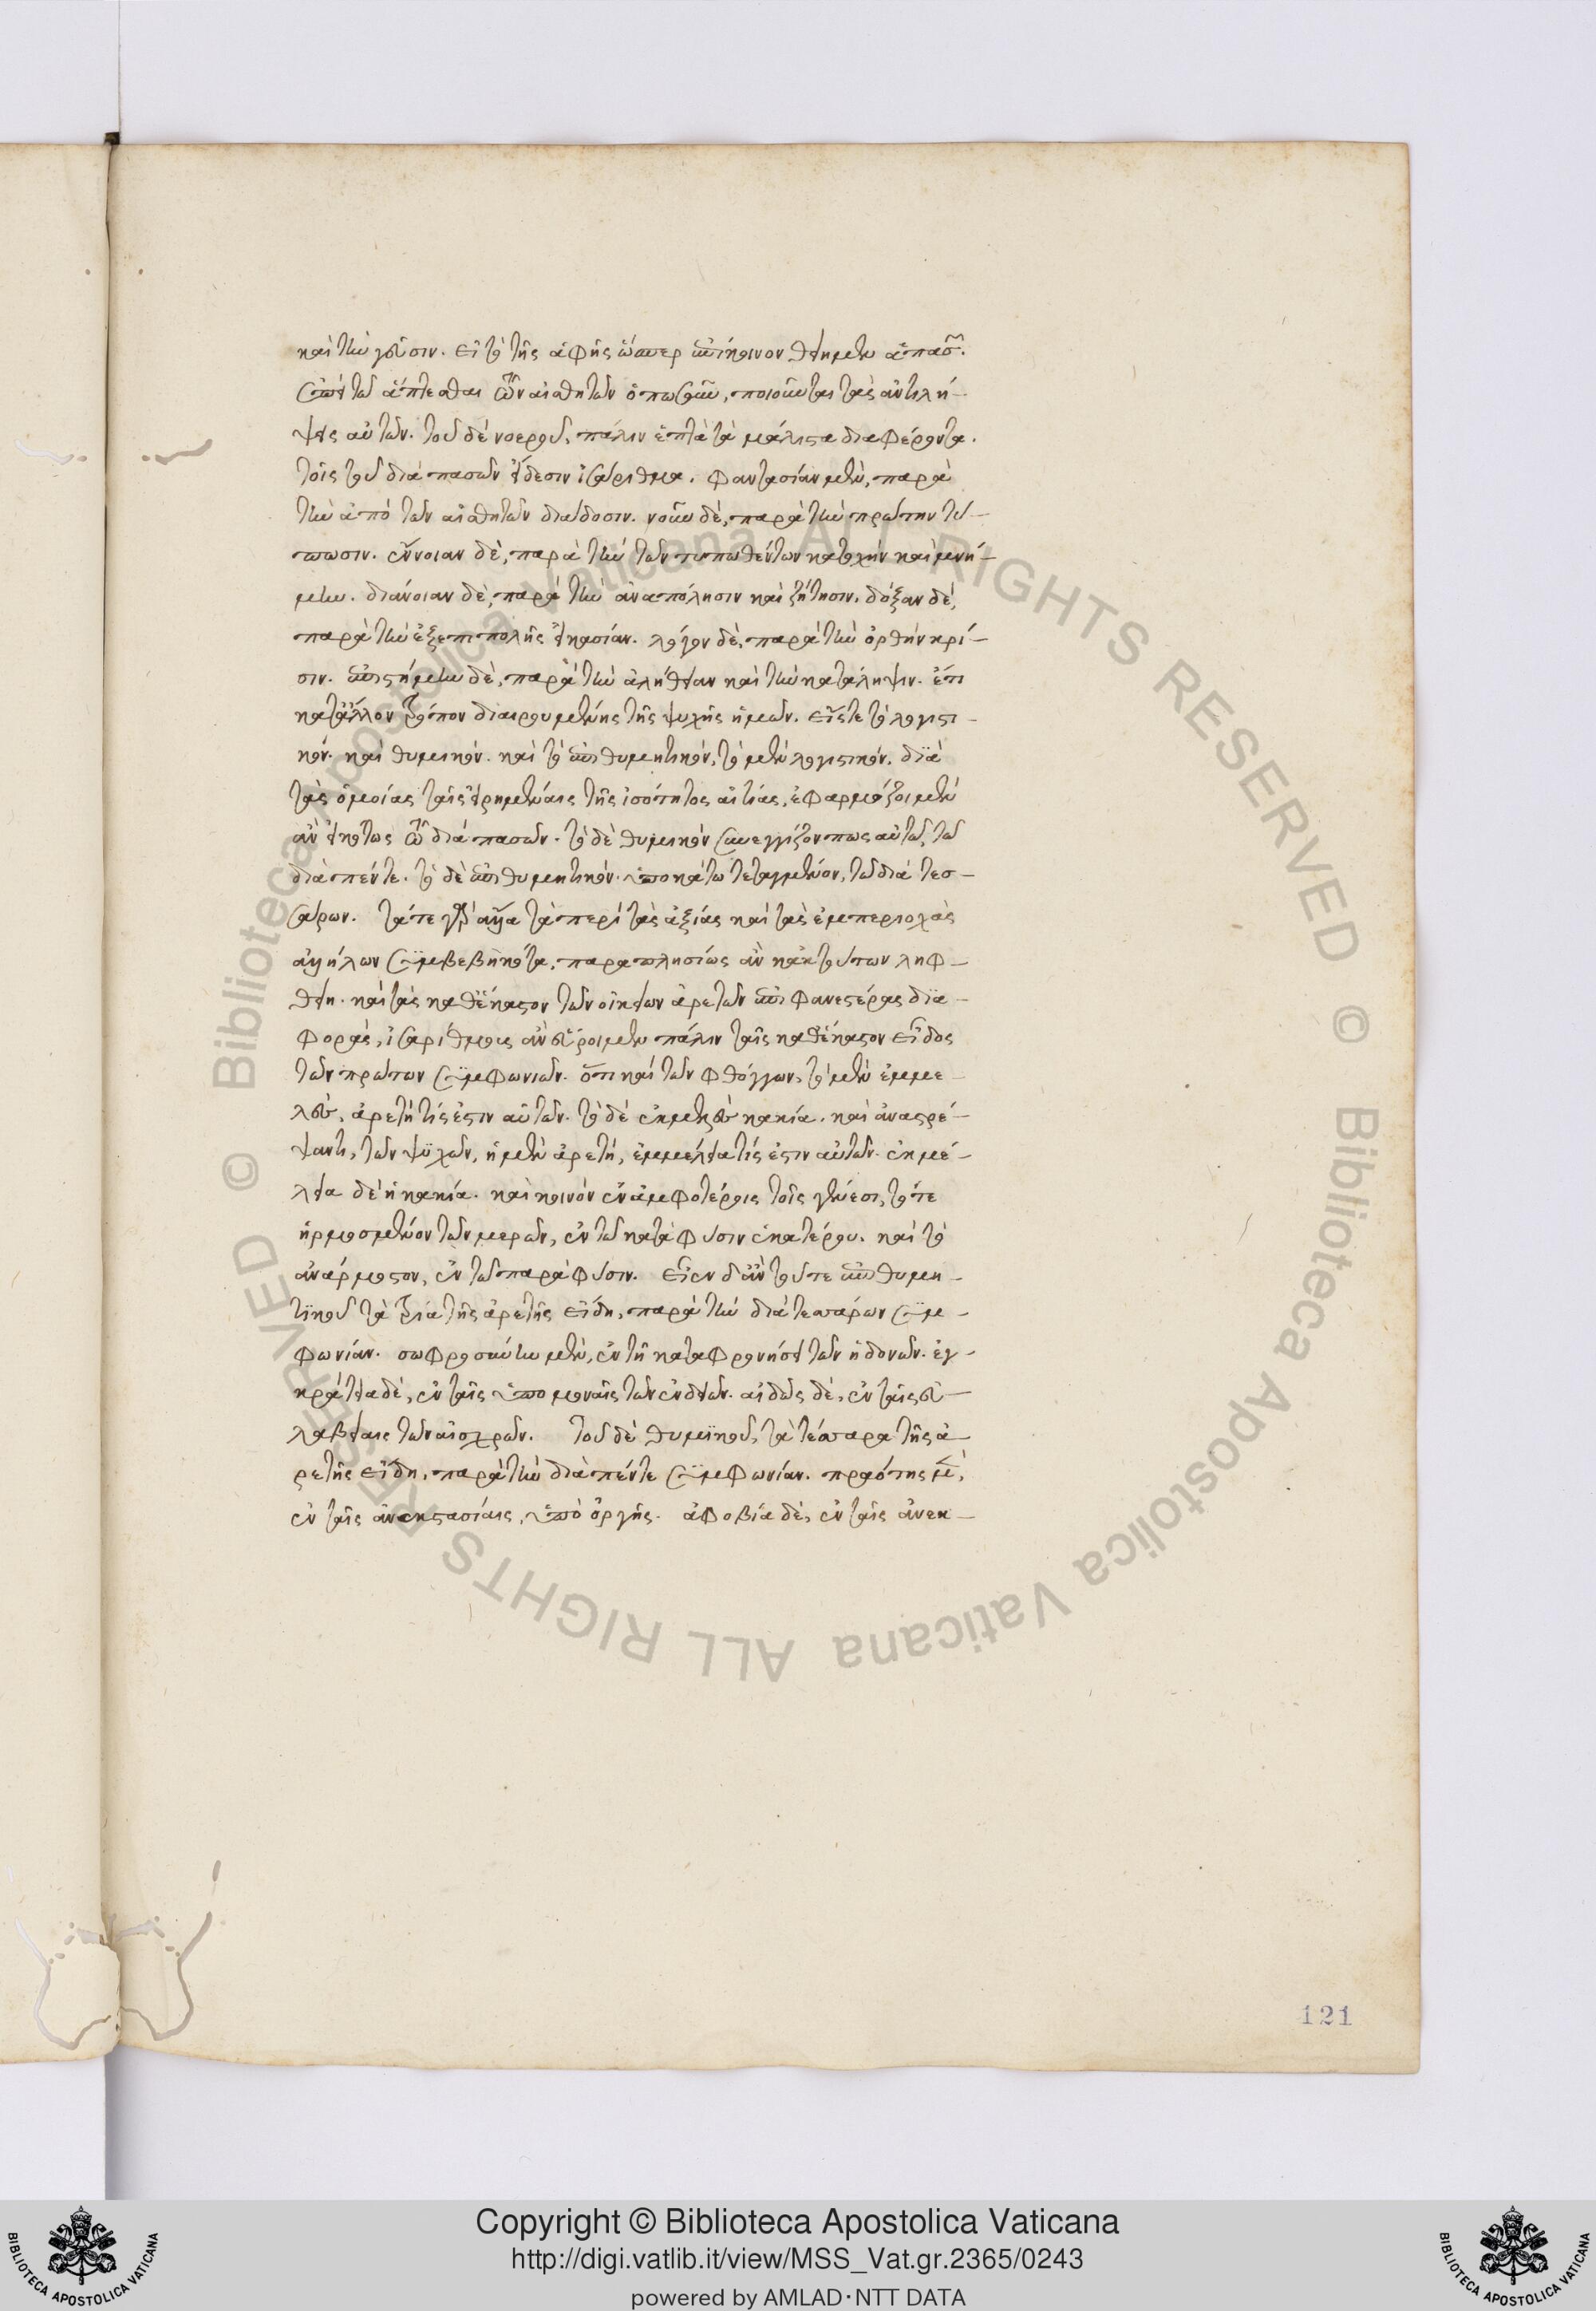 καὶ τὴν γεῦσιν. εἰ τὸ τῆς ἁφῆς ὥσπερ ἐπίκοινον θείημεν ἁπασῶν.
ἐπεὶ τῶ ἅπτεσθαι τῶν αἰσθητῶν ὁπωσοῦν, ποιοῦνται τὰς ἀντιλή-
ψεις αὐτῶν. τοῦ δὲ νοεροῦ, πάλιν ἑπτὰ τὰ μάλιστα διαφέροντα.
τοῖς τοῦ διὰ πασῶν εἴδεσιν ἰσάριθμα. φαντασίαν μὲν, παρὰ
τὴν ἀπὸ τῶν αἰσθητῶν διάδοσιν. νοῦν δὲ, παρὰ τὴν πρώτην τύ-
πωσιν. ἔννοιαν δὲ, παρὰ τὴν τῶν τυπωθέντων κατοχὴν καὶ μνή-
μην. διάνοιαν δὲ, παρὰ τὴν ἀναπόλησιν καὶ ζήτησιν. δόξαν δὲ,
παρὰ τὴν ἐξεπιπολῆς εἰκασίαν. λόγον δὲ, παρὰ τὴν ὀρθὴν κρί-
σιν. ἐπιστήμην δὲ, παρὰ τὴν ἀλήθειαν καὶ τὴν κατάληψιν. ἔτι
κατἄλλον τρόπον διαιρουμένης τῆς ψυχῆς ἡμῶν. εἴς τε τὸ λογιστι-
κόν. καὶ θυμικόν. καὶ τὸ ἐπιθυμητικόν, τὸ μὲν λογιστικόν. διὰ
τὰς ὁμοίας ταῖς εἰρημέναις τῆς ἰσότητος αἰτίας, ἐφαρμόζοιμεν
ἂν εἰκότως τῶ διὰ πασῶν. τὸ δὲ θυμικὸν συνεγγίζον πως αὐτῶ, τῶ
διὰ πέντε. τὸ δὲ ἐπιθυμητικόν. ὑποκάτω τεταγμένον, τῶ διὰ τεσ-
σάρων. τά τε γὰρ ἄλλα τὰ περὶ τὰς ἀξίας καὶ τὰς ἐμπεριοχὰς
ἀλλήλων συμβεβηκότα, παραπλησίως ἂν κἀκ τούτων ληφ-
θείη. καὶ τὰς καθἕκαστον τῶν οἰκείων ἀρετῶν ἐπιφανεστέρας δια-
φορὰς, ἰσαρίθμους ἂν εὕροιμεν πάλιν ταῖς καθἕκαστον εἶδος
τῶν πρώτων συμφωνιῶν. ὅτι καὶ τῶν φθόγγων, τὸ μὲν ἐμμε-
λὲς, ἀρετή τίς ἐστιν αὐτῶν. τὸ δὲ ἐκμελὲς κακία. καὶ ἀναστρέ-
ψαντι, τῶν ψυχῶν, ἡ μὲν ἀρετὴ, ἐμμέλειά τίς ἐστιν αὐτῶν. ἐκμέ-
λεια δὲ ἡ κακία. καὶ κοινὸν ἐν ἀμφοτέροις τοῖς γένεσι, τό τε
ἡρμοσμένον τῶν μερῶν, ἐν τῶ κατὰ φύσιν ἑκατέρου. καὶ τὸ
ἀνάρμοστον, ἐν τῶ παρὰ φύσιν. εἶεν δἂν τοῦ τε ἐπιθυμη-
τικοῦ τὰ τρία τῆς ἀρετῆς εἴδη, παρὰ τὴν διὰ τεσσάρων συμ-
φωνίαν. σωφροσύνη μὲν, ἐν τῆ καταφρονήσει τῶν ἡδονῶν. ἐγ-
κράτεια δὲ, ἐν ταῖς ὑπομοναῖς τῶν ἐνδειῶν. αἰδὼς δὲ, ἐν ταῖς εὐ-
λαβείαις τῶν αἰσχρῶν. τοῦ δὲ θυμικοῦ, τὰ τέσσαρα τῆς ἀ-
ρετῆς εἴδη, παρὰ τὴν διὰ πέντε συμφωνίαν. πραότης μὲν,
ἐν ταῖς ἀνεκστασίαις, ὑπὸ ὀργῆς. ἀφοβία δὲ, ἐν ταῖς ἀνεκ-
121
© Biblioteca Apostolica Vaticana ALL RIGHTS RESERVED © Biblioteca Apostolica Vaticana ALL RIGHTS RESERVED
BIBLIOTECA APOSTOLICA VATICANA
Copyright © Biblioteca Apostolica Vaticana
http://digi.vatlib.it/view/MSS_Vat.gr.2365/0243
powered by AMLAD·NTT DATA
BIBLIOTECA APOSTOLICA VATICANA